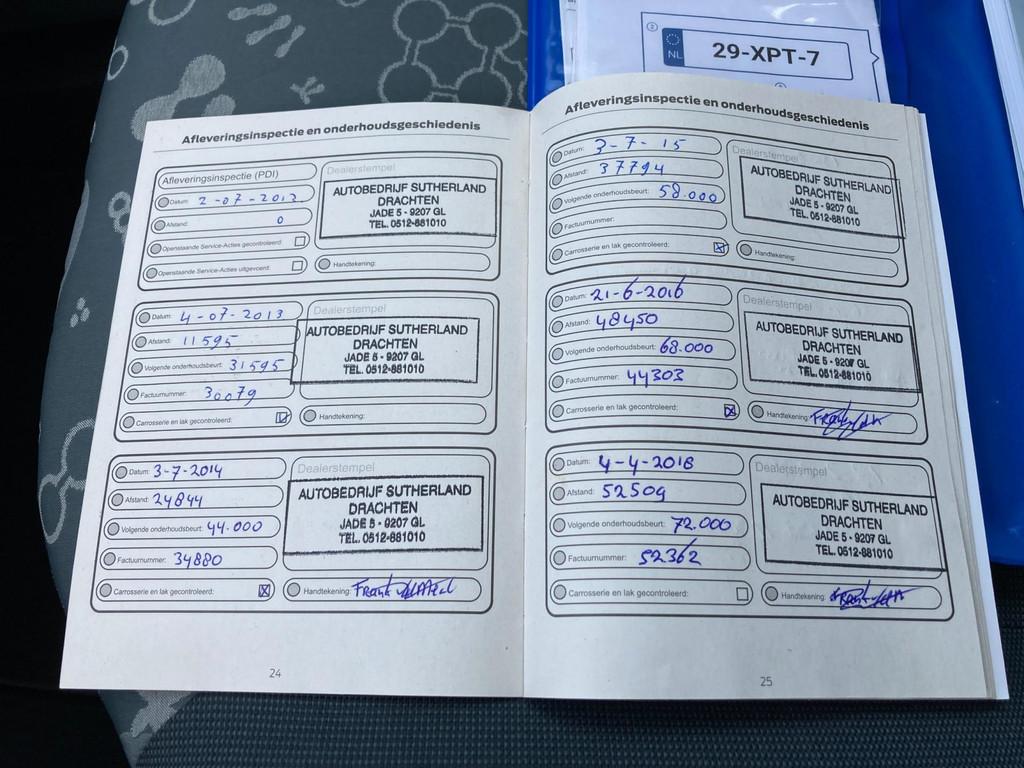 NL
29-XPT-7
Afleveringsinspectie en onderhoudsgeschiedenis
Afleveringsinspectie (PDI)
Datum: 2-07-2012
Afstand: 0
Openstaande Service-Acties gecontroleerd:
Openstaande Service-Acties uitgevoerd:
Dealerstempel
AUTOBEDRIJF SUTHERLAND
DRACHTEN
JADE 5 - 9207 GL
TEL. 0512-881010
Handtekening:
Datum: 4-07-2013
Afstand: 11595
Volgende onderhoudsbeurt: 31595
Factuurnummer: 30079
Carrosserie en lak gecontroleerd:
Dealerstempel
AUTOBEDRIJF SUTHERLAND
DRACHTEN
JADE 5 - 9207 GL
TEL. 0512-881010
Handtekening:
Datum: 3-7-2014
Afstand: 24844
Volgende onderhoudsbeurt: 44.000
Factuurnummer: 34880
Carrosserie en lak gecontroleerd:
Dealerstempel
AUTOBEDRIJF SUTHERLAND
DRACHTEN
JADE 5 - 9207 GL
TEL. 0512-881010
Handtekening:
24
Afleveringsinspectie en onderhoudsgeschiedenis
Datum: 3-7-15
Afstand: 37794
Volgende onderhoudsbeurt: 58.000
Factuurnummer:
Carrosserie en lak gecontroleerd:
Dealerstempel
AUTOBEDRIJF SUTHERLAND
DRACHTEN
JADE 5 - 9207 GL
TEL. 0512-881010
Handtekening:
Datum: 21-6-2016
Afstand: 48450
Volgende onderhoudsbeurt: 68.000
Factuurnummer: 44303
Carrosserie en lak gecontroleerd:
Dealerstempel
AUTOBEDRIJF SUTHERLAND
DRACHTEN
JADE 5 - 9207 GL
TEL. 0512-881010
Handtekening:
Datum: 4-4-2018
Afstand: 52509
Volgende onderhoudsbeurt: 72.000
Factuurnummer: 52362
Carrosserie en lak gecontroleerd:
Dealerstempel
AUTOBEDRIJF SUTHERLAND
DRACHTEN
JADE 5 - 9207 GL
TEL. 0512-881010
Handtekening:
25